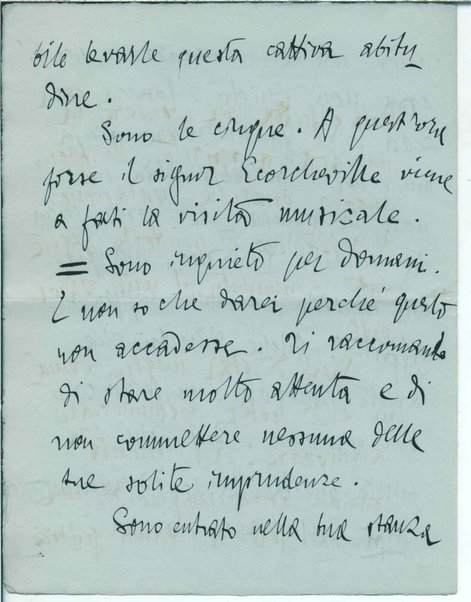 bile levarle questa cattiva abitu
dine.
Sono le cinque. A quest'ora
forse il signor Ecorcheville viene
a farti la visita musicale.
= Sono inquieto per domani.
E non so che darei perché questo
non accadesse. Ti raccomando
di stare molto attenta e di
non commettere nessuna delle
tue solite imprudenze.
Sono entrato nella tua stanza